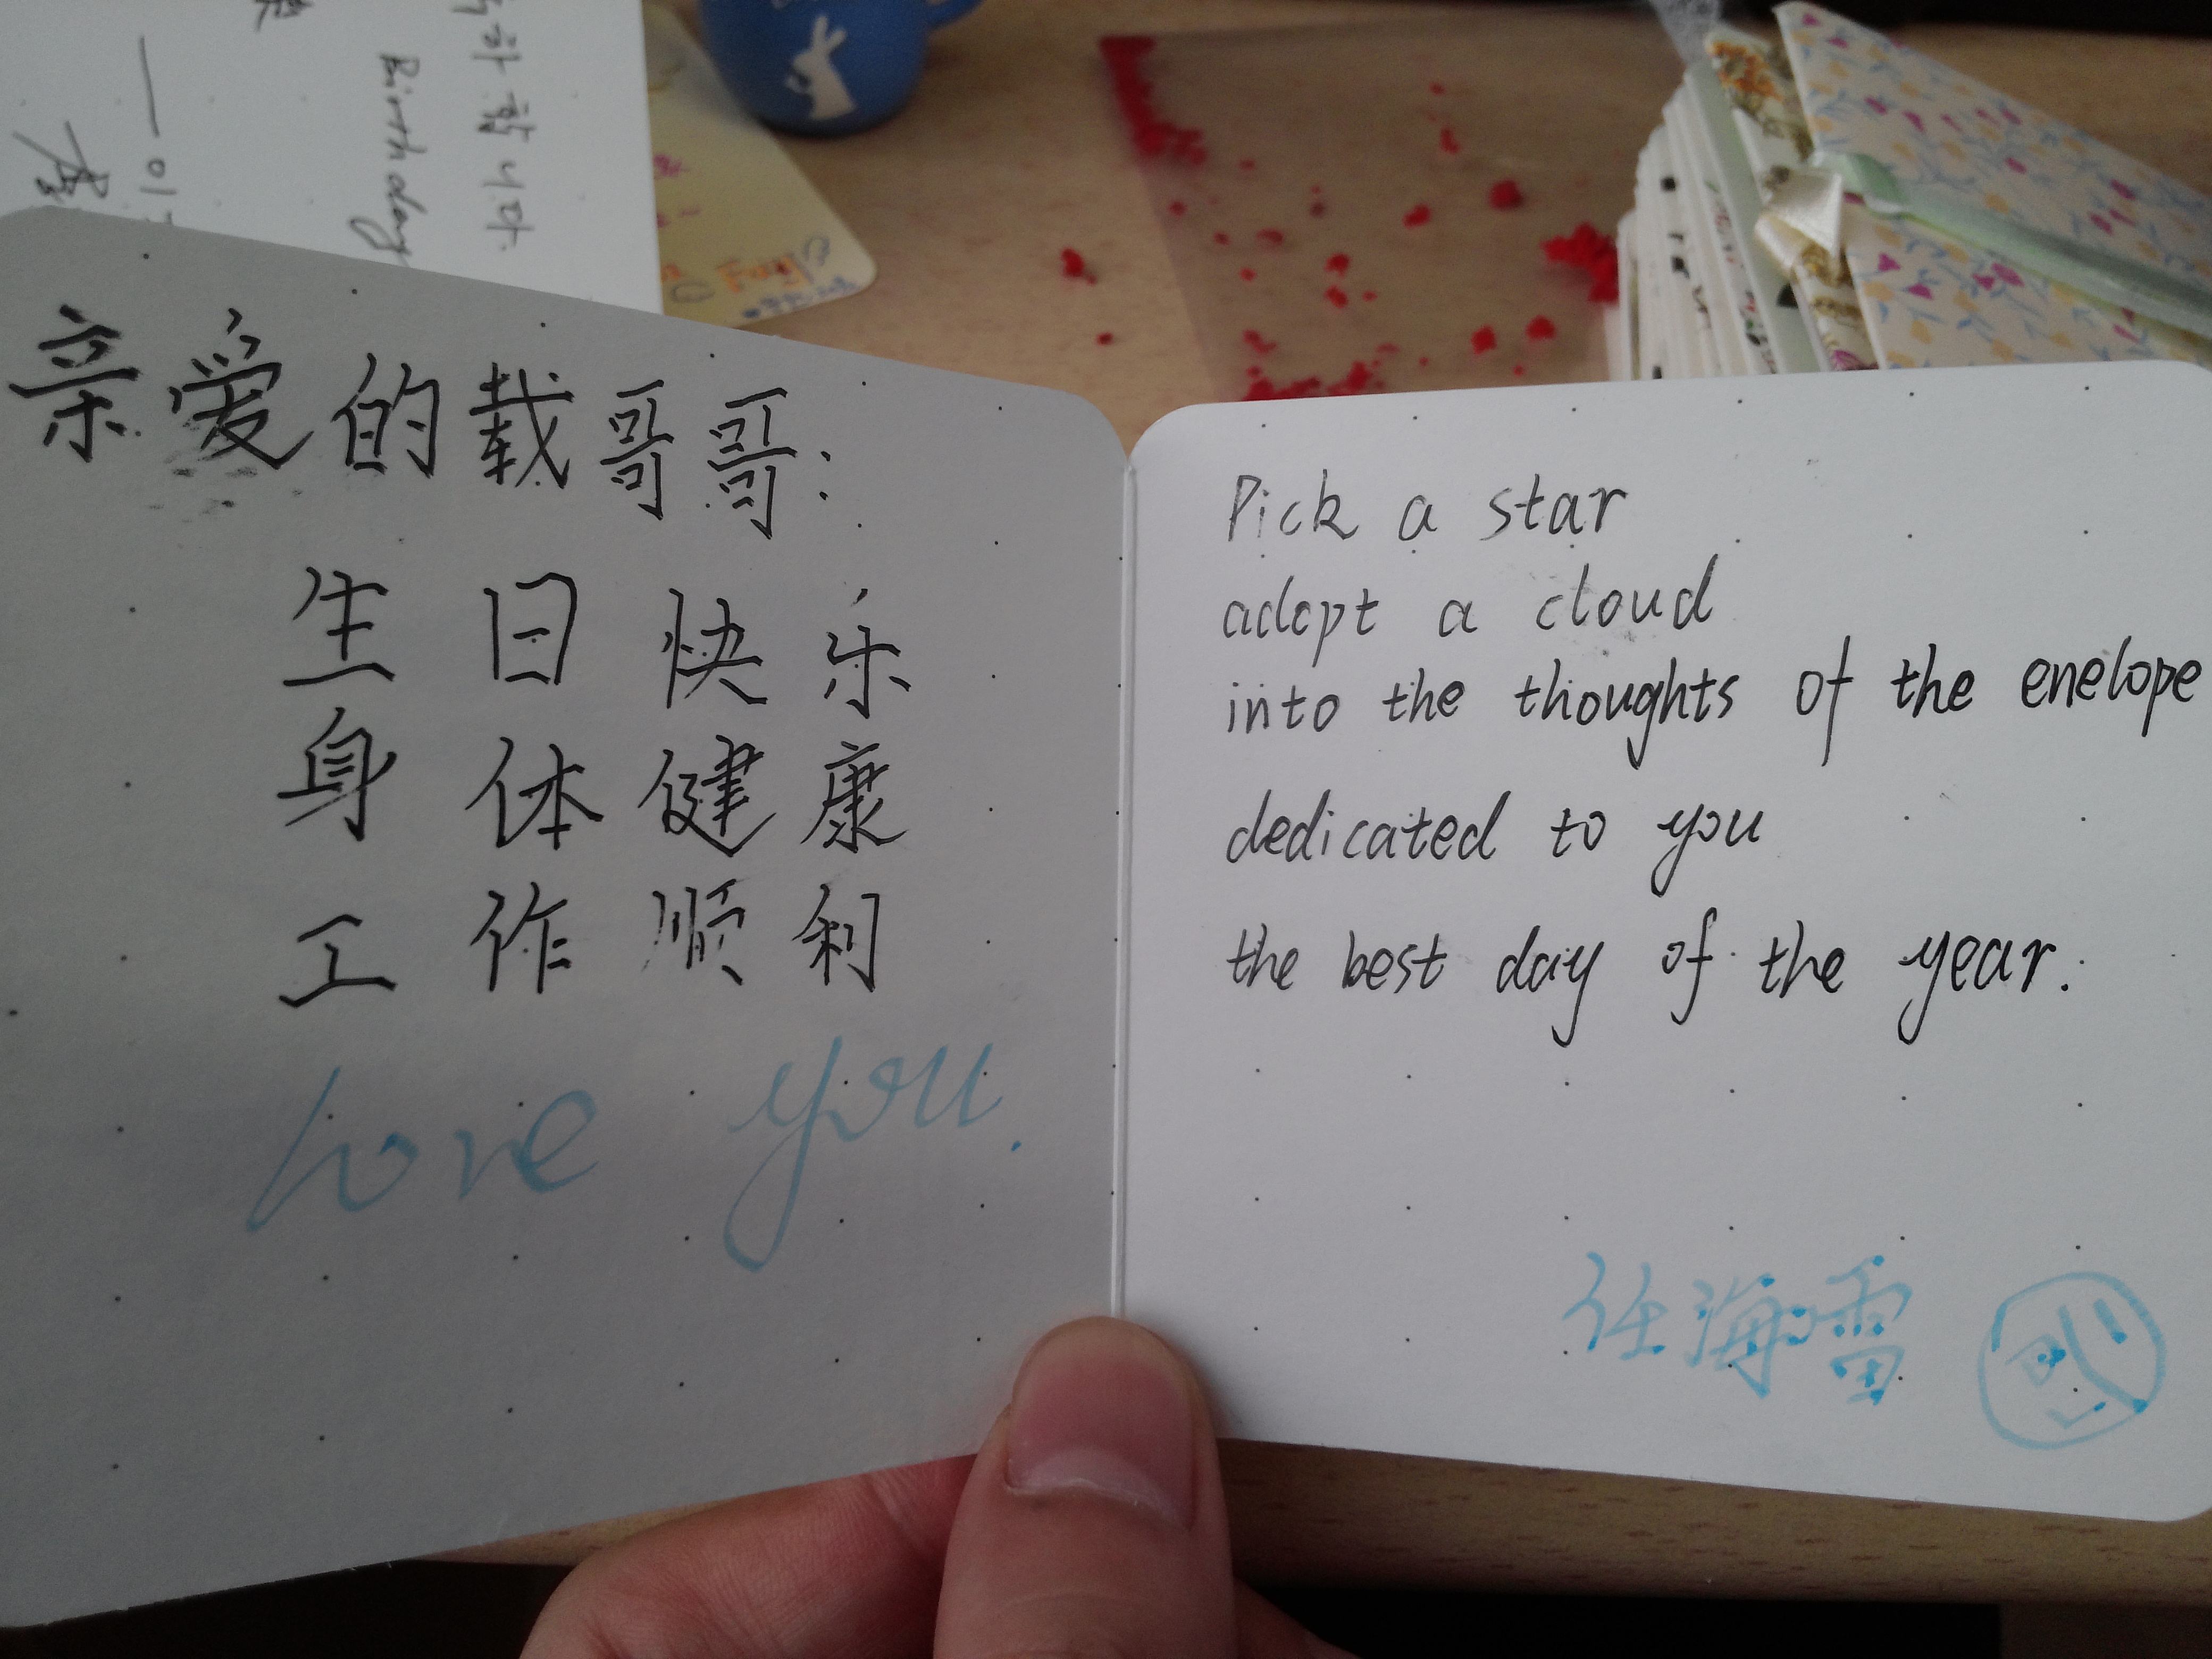 亲爱的载哥哥:
生日快乐
身体健康
工作顺利
love you.
Pick a star
adopt a cloud
into the thoughts of the enelope
dedicated to you
the best day of the year.
任海雪
하합니다.
Birthday